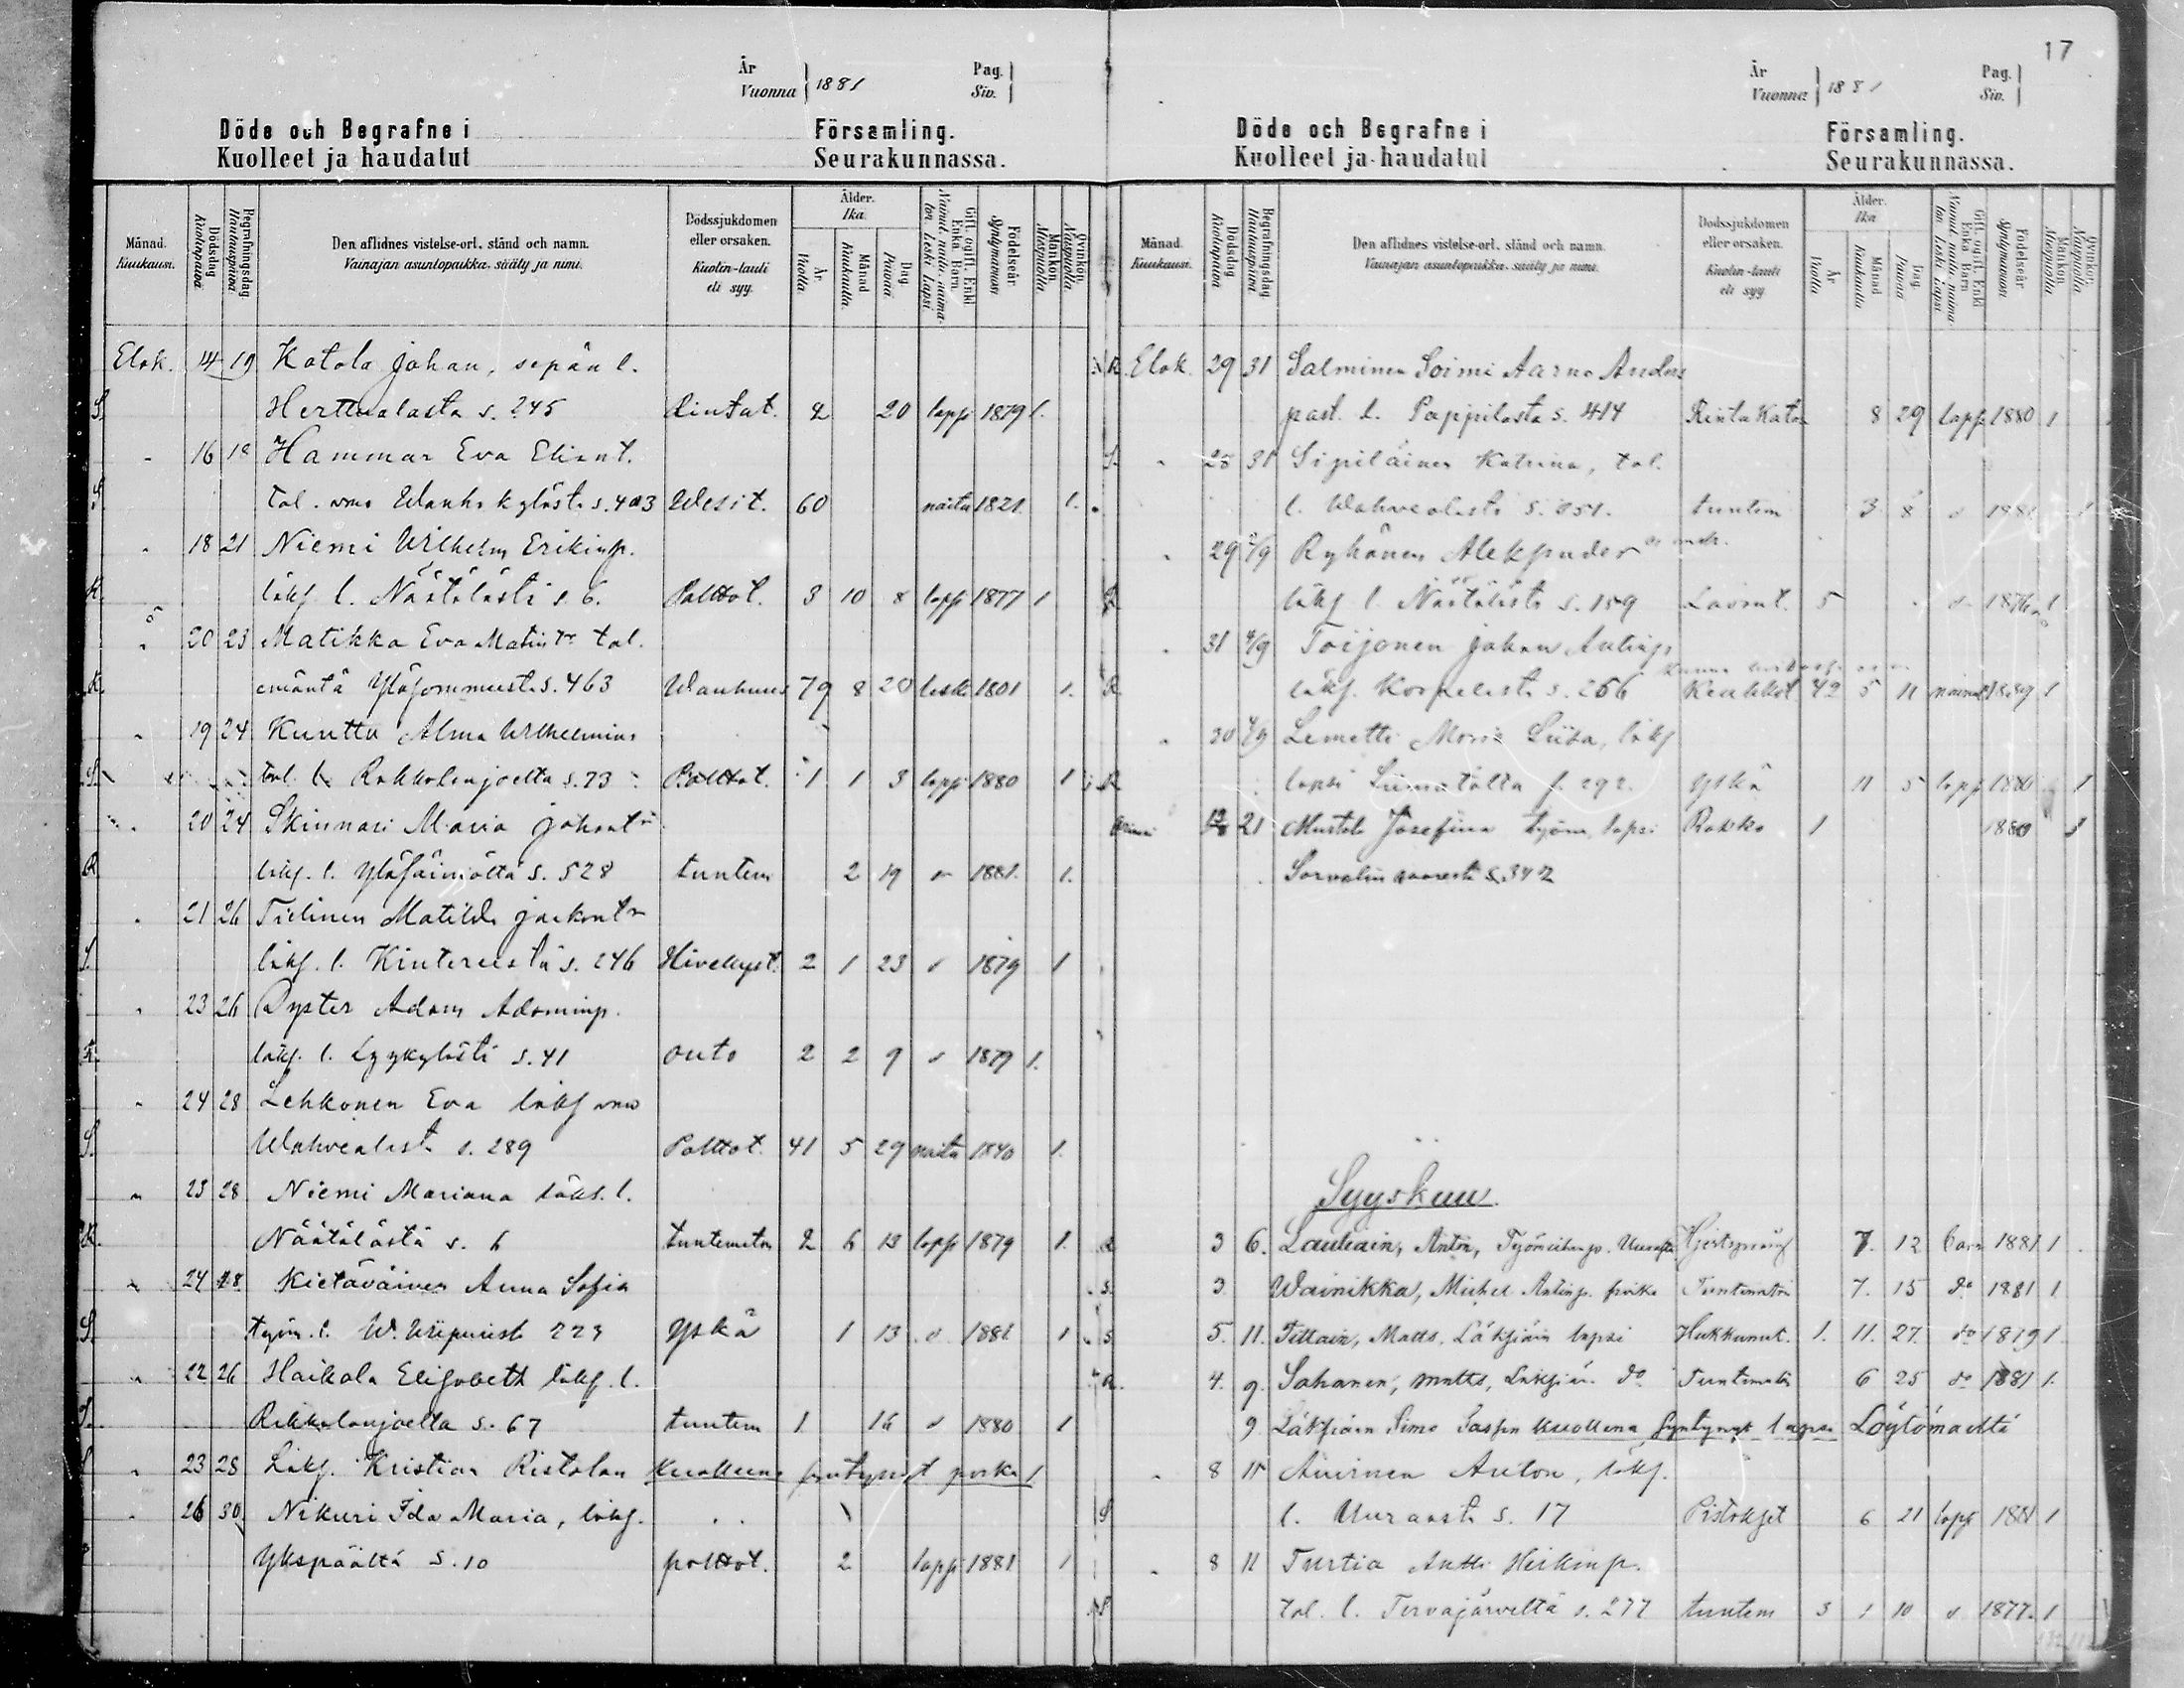 17
År
Vuonna 1881
Pag.
Siv.
Döde och Begrafne i Församling.
Kuolleet ja haudatut Seurakunnassa.
Månad. Kuukausi.
Dödsdag Kuolinpäivä
Begrafningsdag Hautauspäivä
Den aflidnes vistelse-ort, stånd och namn.
Vainajan asuntopaikka, sääty ja nimi.
Dödssjukdomen eller orsaken.
Kuolin-tauti eli syy.
Ålder. Ikä.
År Vuotta.
Månad Kuukautta.
Dag Päivää
Gift, ogift, Enkl. Enka. Barn.
Födelseår Syntymävuosi
Mankön. Miespuolia
Qvinkön. Naispuolia.
Elok. 14 19 Katola Johan, sepän l.
S. Herttualasta s. 245 Rintat. 2 20 lapsi 1879 1.
16 Hammar Eva Eliant.
S tal. Wanhakylästä s. 403 Wesit. 60 naitu 1821. 1.
18 21 Niemi Wilhelm Erikinp.
K. läks. l. Näätälästä s. 6. Polttot. 3 10 8 lapsi 1877 1
20 23 Matikka Eva Matintr tal.
K. emäntä Yläsommeesta s. 463 Wanhuus 79 8 20 leski 1801 1.
19 24 Kuuttu Alma Wilhelmina
S. tal. l. Rokkolanjoelta s. 73 Polttot. 1 1 3 lapsi 1880 1
20 24 Skinnari Maria Johantr
R läks. l. Yläsäiniöltä s. 528 tuntem 2 19 1881. 1.
21 26 Tielinen Matilda
S. läks. l. Kintereestä s. 246 Hivellyst. 2 1 23 1879 1
23 26 Pyster Adam Adaminp.
K. läks. l. Lyykylästä s. 41 outo 2 2 9 1879 1.
24 28 Lehkonen Eva läks
S. Wahvialasta s. 289 Polttot. 41 5 29 naitu 1840 1.
23 28 Niemi Mariana läks. l.
K. Näätälästä s. 6 tuntematon 2 6 13 lapsi 1879 1.
24 28 Kietäväinen Anna Sofia
S. työm. l. W. Wiipurista 229 Yskä 1 13 1881 1
22 26 Haikala Elisabeth läks. l.
S. Rokkolanjoelta s. 67 tuntem 1 16 1880 1
S 23 28 Läks. Kristian Ristolan Kuolleena syntynyt poika 1
26 30 Nikuri Ida Maria, läks.
Ykspäältä s. 10 polttot. 2 lapsi 1881 1
År
Vuonna 1881
Pag.
Siv.
Döde och Begrafne i Församling.
Kuolleet ja haudatut Seurakunnassa.
Månad. Kuukausi.
Dödsdag Kuolinpäivä
Begrafningsdag Hautauspäivä
Den aflidnes vistelse-ort, stånd och namn.
Vainajan asuntopaikka, sääty ja nimi.
Dödssjukdomen eller orsaken.
Kuolin-tauti eli syy
Ålder. Ikä
År Vuotta
Månad Kuukautta
Dag Päivää
Gift, ogift, Enkl. Enka. Barn
Födelseår Syntymävuosi
Mankön. Miespuolia
Qvinkön. Naispuolia
R Elok. 29 31 Salminen Soimi Aarno Anders
past. l. Pappilasta s. 414 Rintakatar 8 29 lapsi 1880 1
S. 28 31 Sipiläinen Katrina, tal.
l. Wahvialasta s. 351. tuntem 3 8 1881 1
29 2/9 Ryhänen Aleksander
läks l. Näätälästä s. 159 Lavant. 5 1876 1
31 4/9 Toijonen Johan Antinp
R läks. Korpelasta s. 266 Keuhkot 42 5 11 nainut 1839 1
30 4/9 Lemetti Maria Liisa, läks
R lapsi Liimatalta s. 292. Yskä 11 5 lapsi 1880 1
21 Mustala Josefiina työm. lapsi Rokko 1 1880 1
Sorvalin saaresta s. 342
Syyskuu.
3 6. Lauliain, Anton, 7. 12 barn 1881 1
S. 3 Wainikka, Mickel Antinp. poika Tuntematon 7. 15 do 1881 1
S 5. 11. Tittain, Matts, Läksiäin lapsi Hukkunut. 1. 11. 27. do 1879 1.
R. 4. 9. Sahanen, Matts, Läksiäi. do Tuntematon 6 25 do 1881 1.
9 Läksiäin Simo kuollena syntynyt lapsi
8 11 Anton, läks.
S l. Uuraasta s. 17 Pistokset 6 21 lapsi 1881 1
8 11 Turtia Antti Heikinp.
S tal. l. Tervajärveltä s. 277 tuntem 3 1 10 1877. 1